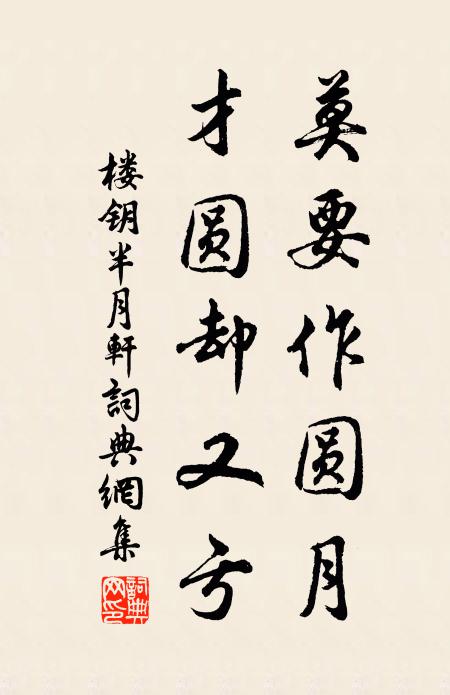 莫要作圆月
才圆却又亏
楼钥半月軒詞典網集
詞典网印